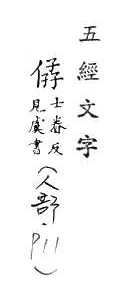 五經文字
士眷反
見虞書
(人部·P11)